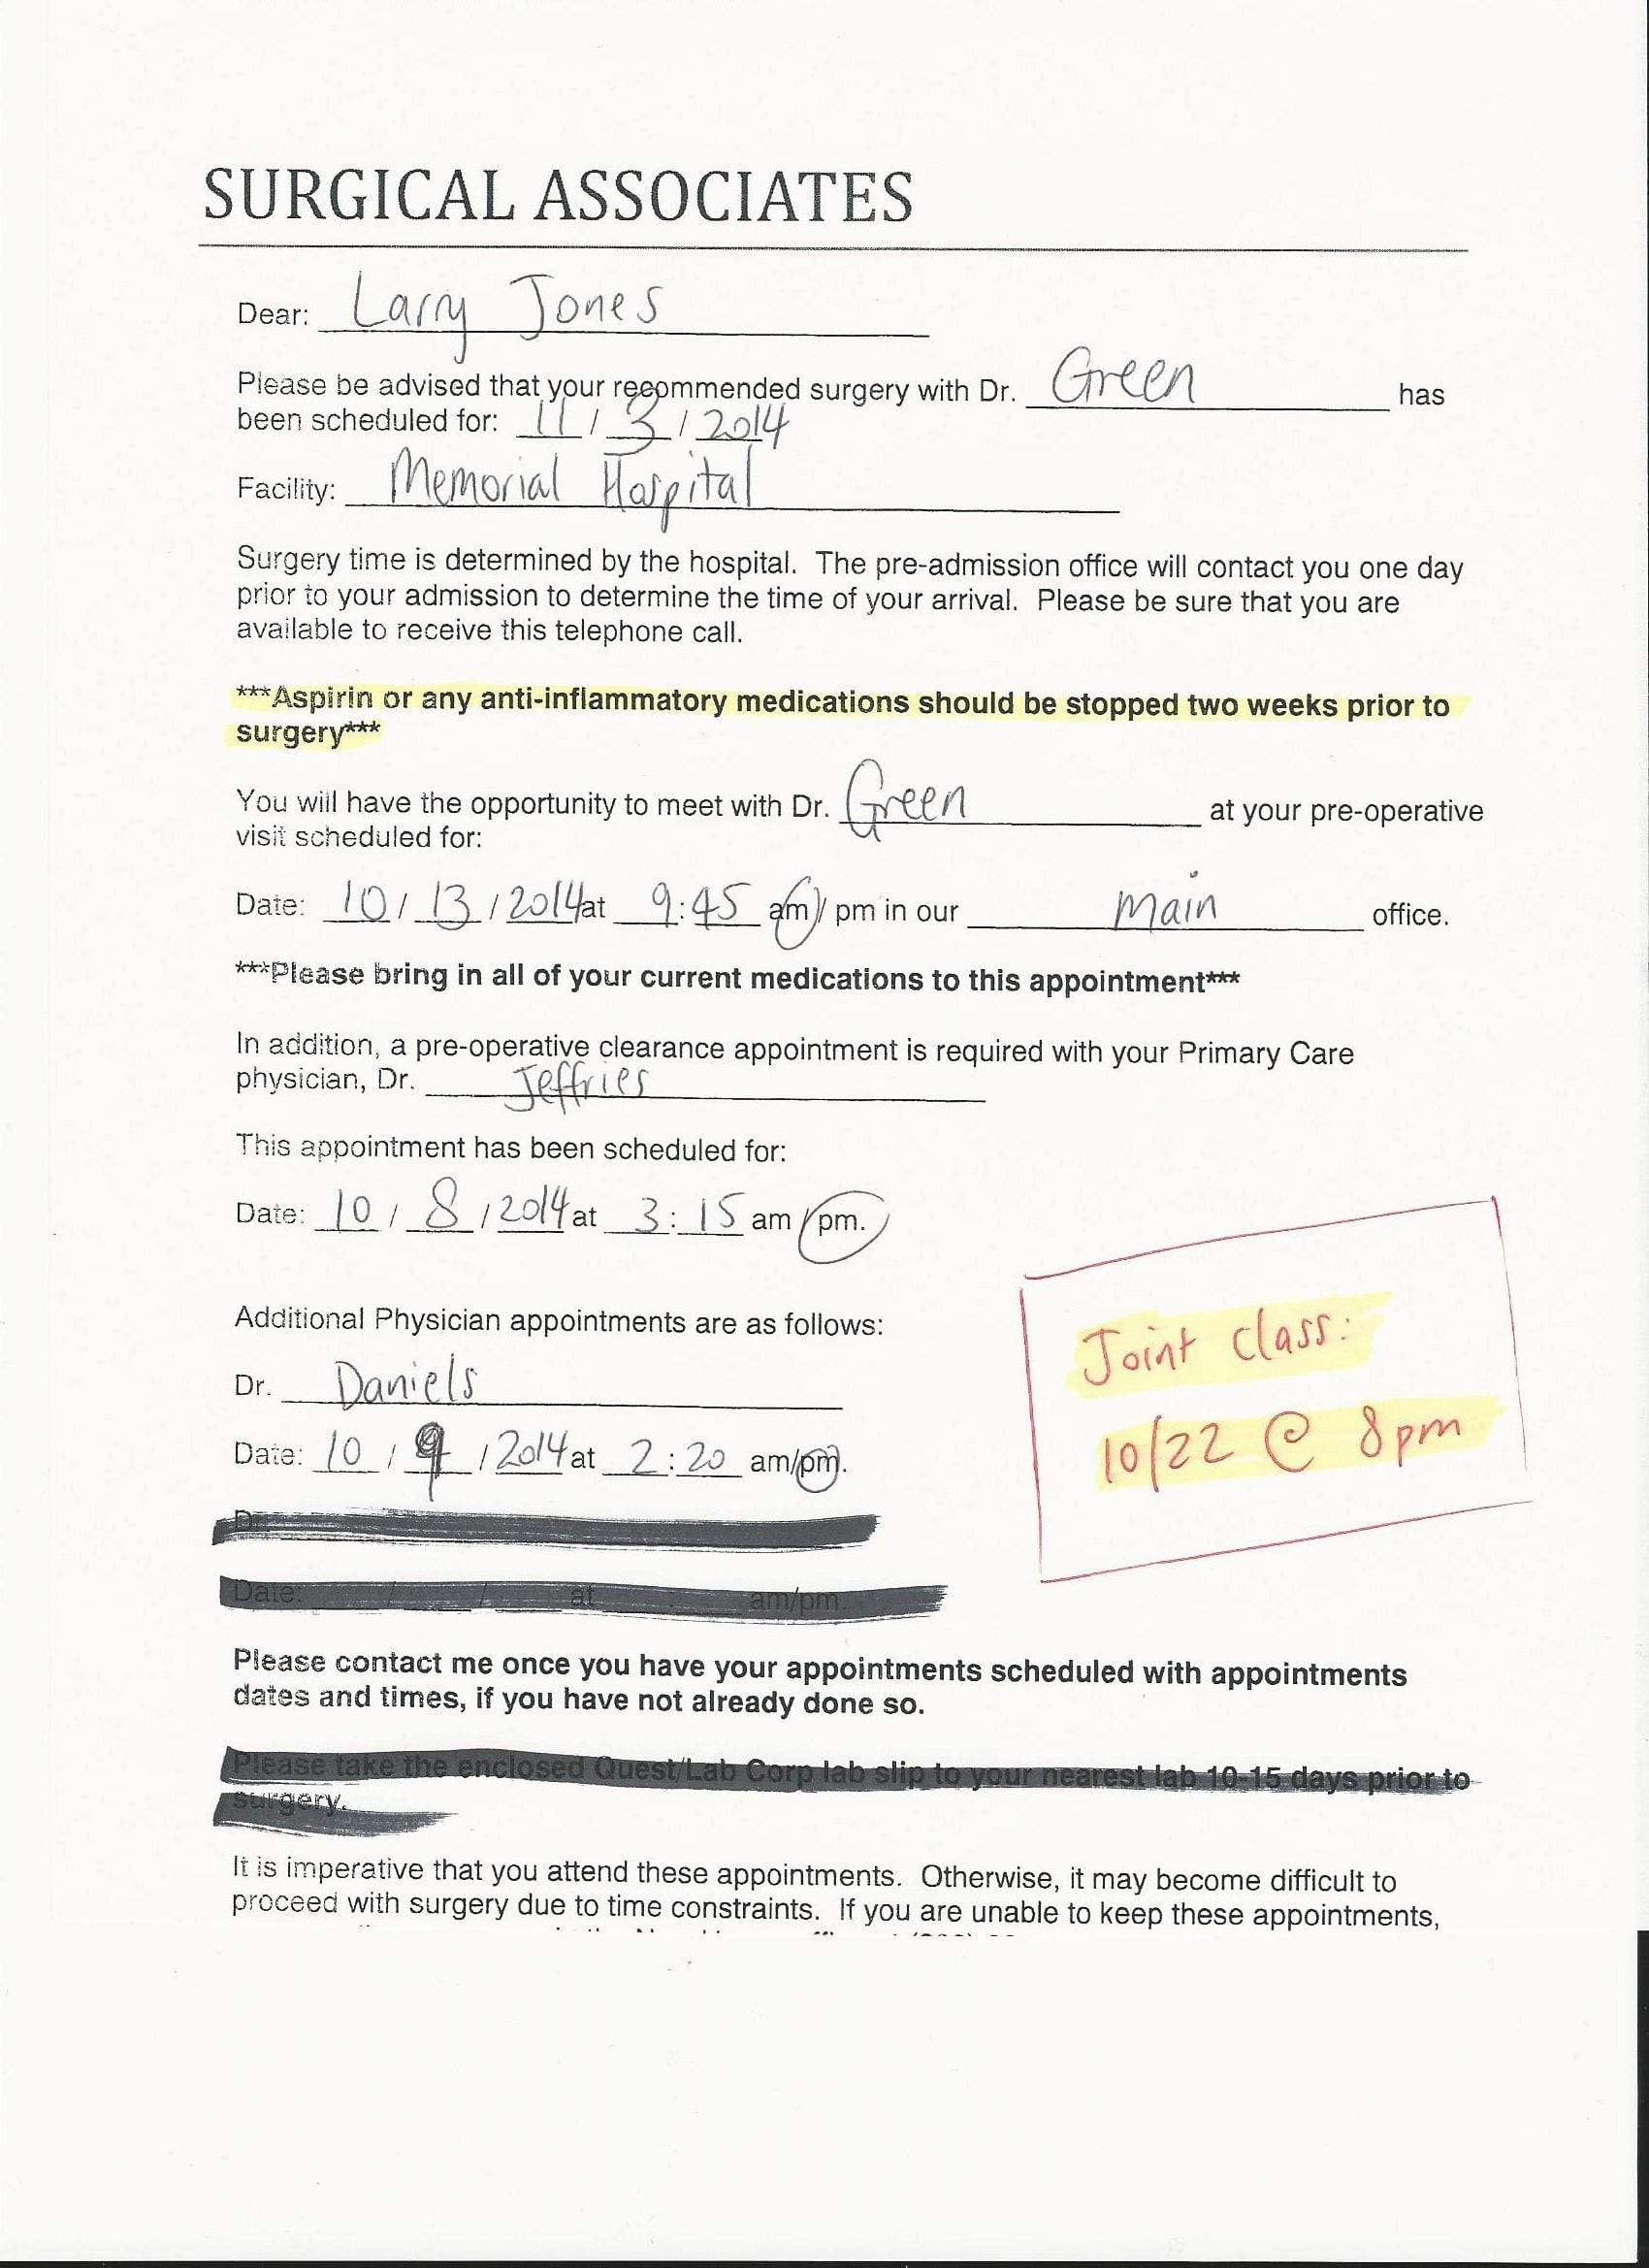 SURGICAL ASSOCIATES
Dear: Larry Jones
Please be advised that your recommended surgery with Dr. Green has
been scheduled for: 11 / 3 / 2014
Facility: Memorial Hospital
Surgery time is determined by the hospital. The pre-admission office will contact you one day
prior to your admission to determine the time of your arrival. Please be sure that you are
available to receive this telephone call.
***Aspirin or any anti-inflammatory medications should be stopped two weeks prior to
surgery***
You will have the opportunity to meet with Dr. Green at your pre-operative
visit scheduled for:
Date: 10 / 13 / 2014 at 9:45 am / pm in our main office.
***Please bring in all of your current medications to this appointment***
In addition, a pre-operative clearance appointment is required with your Primary Care
physician, Dr. Jeffries
This appointment has been scheduled for:
Date: 10 / 8 / 2014 at 3:15 am / pm.
Additional Physician appointments are as follows:
Dr. Daniels
Date: 10 / 9 / 2014 at 2:20 am/pm.
Joint Class:
10/22 @ 8pm
Dr.
Date: / / at : am/pm.
Please contact me once you have your appointments scheduled with appointments
dates and times, if you have not already done so.
Please take the enclosed Quest/Lab Corp lab slip to your nearest lab 10-15 days prior to
surgery.
It is imperative that you attend these appointments. Otherwise, it may become difficult to
proceed with surgery due to time constraints. If you are unable to keep these appointments,